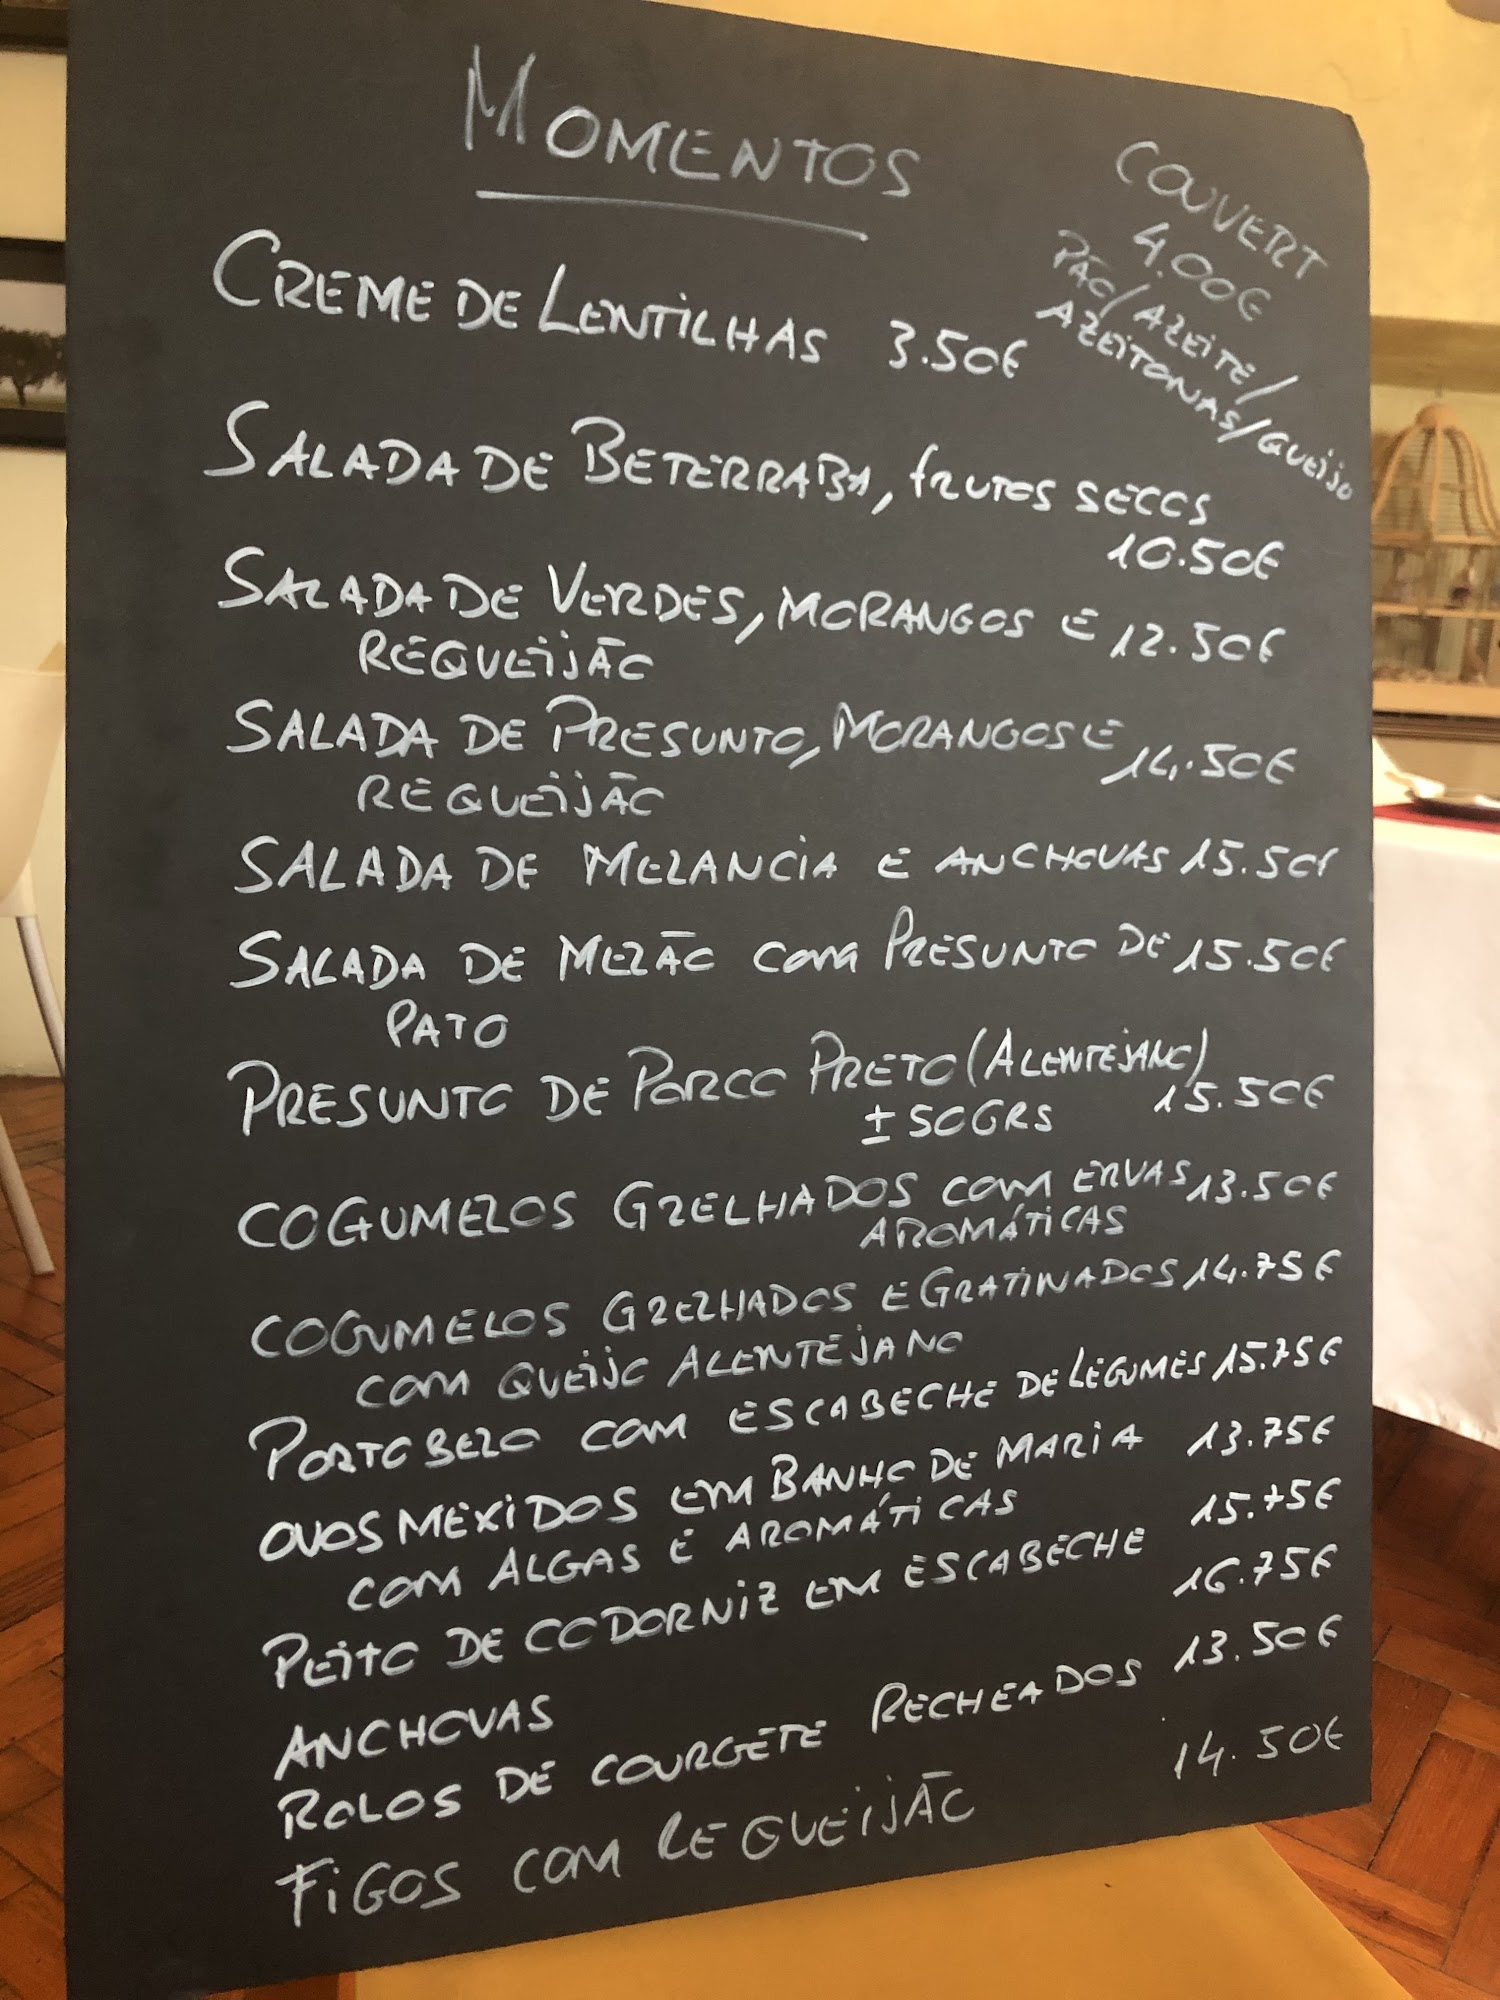 MOMENTOS
COUVERT
4.00€
PÃO/AZEITE/
AZEITONAS/QUEIJO
CREME DE LENTILHAS 3.50€
SALADA DE BETERRABA, FRUTOS SECOS
10.50€
SALADA DE VERDES, MORANGOS E 12.50€
REQUEIJÃO
SALADA DE PRESUNTO, MORANGOS E 14.50€
REQUEIJÃO
SALADA DE MELANCIA E ANCHOVAS 15.50€
SALADA DE MELÃO COM PRESUNTO DE 15.50€
PATO
PRESUNTO DE PORCO PRETO (ALENTEJANO)
± 50GRS 15.50€
COGUMELOS GRELHADOS COM ERVAS 13.50€
AROMÁTICAS
COGUMELOS GRELHADOS E GRATINADOS 14.75€
COM QUEIJO ALENTEJANO
PORTOBELO COM ESCABECHE DE LEGUMES 15.75€
OVOS MEXIDOS EM BANHO DE MARIA 13.75€
COM ALGAS E AROMÁTICAS
PEITO DE CODORNIZ EM ESCABECHE 15.75€
ANCHOVAS 16.75€
ROLOS DE COURGETE RECHEADOS 13.50€
FIGOS COM REQUEIJÃO 14.50€